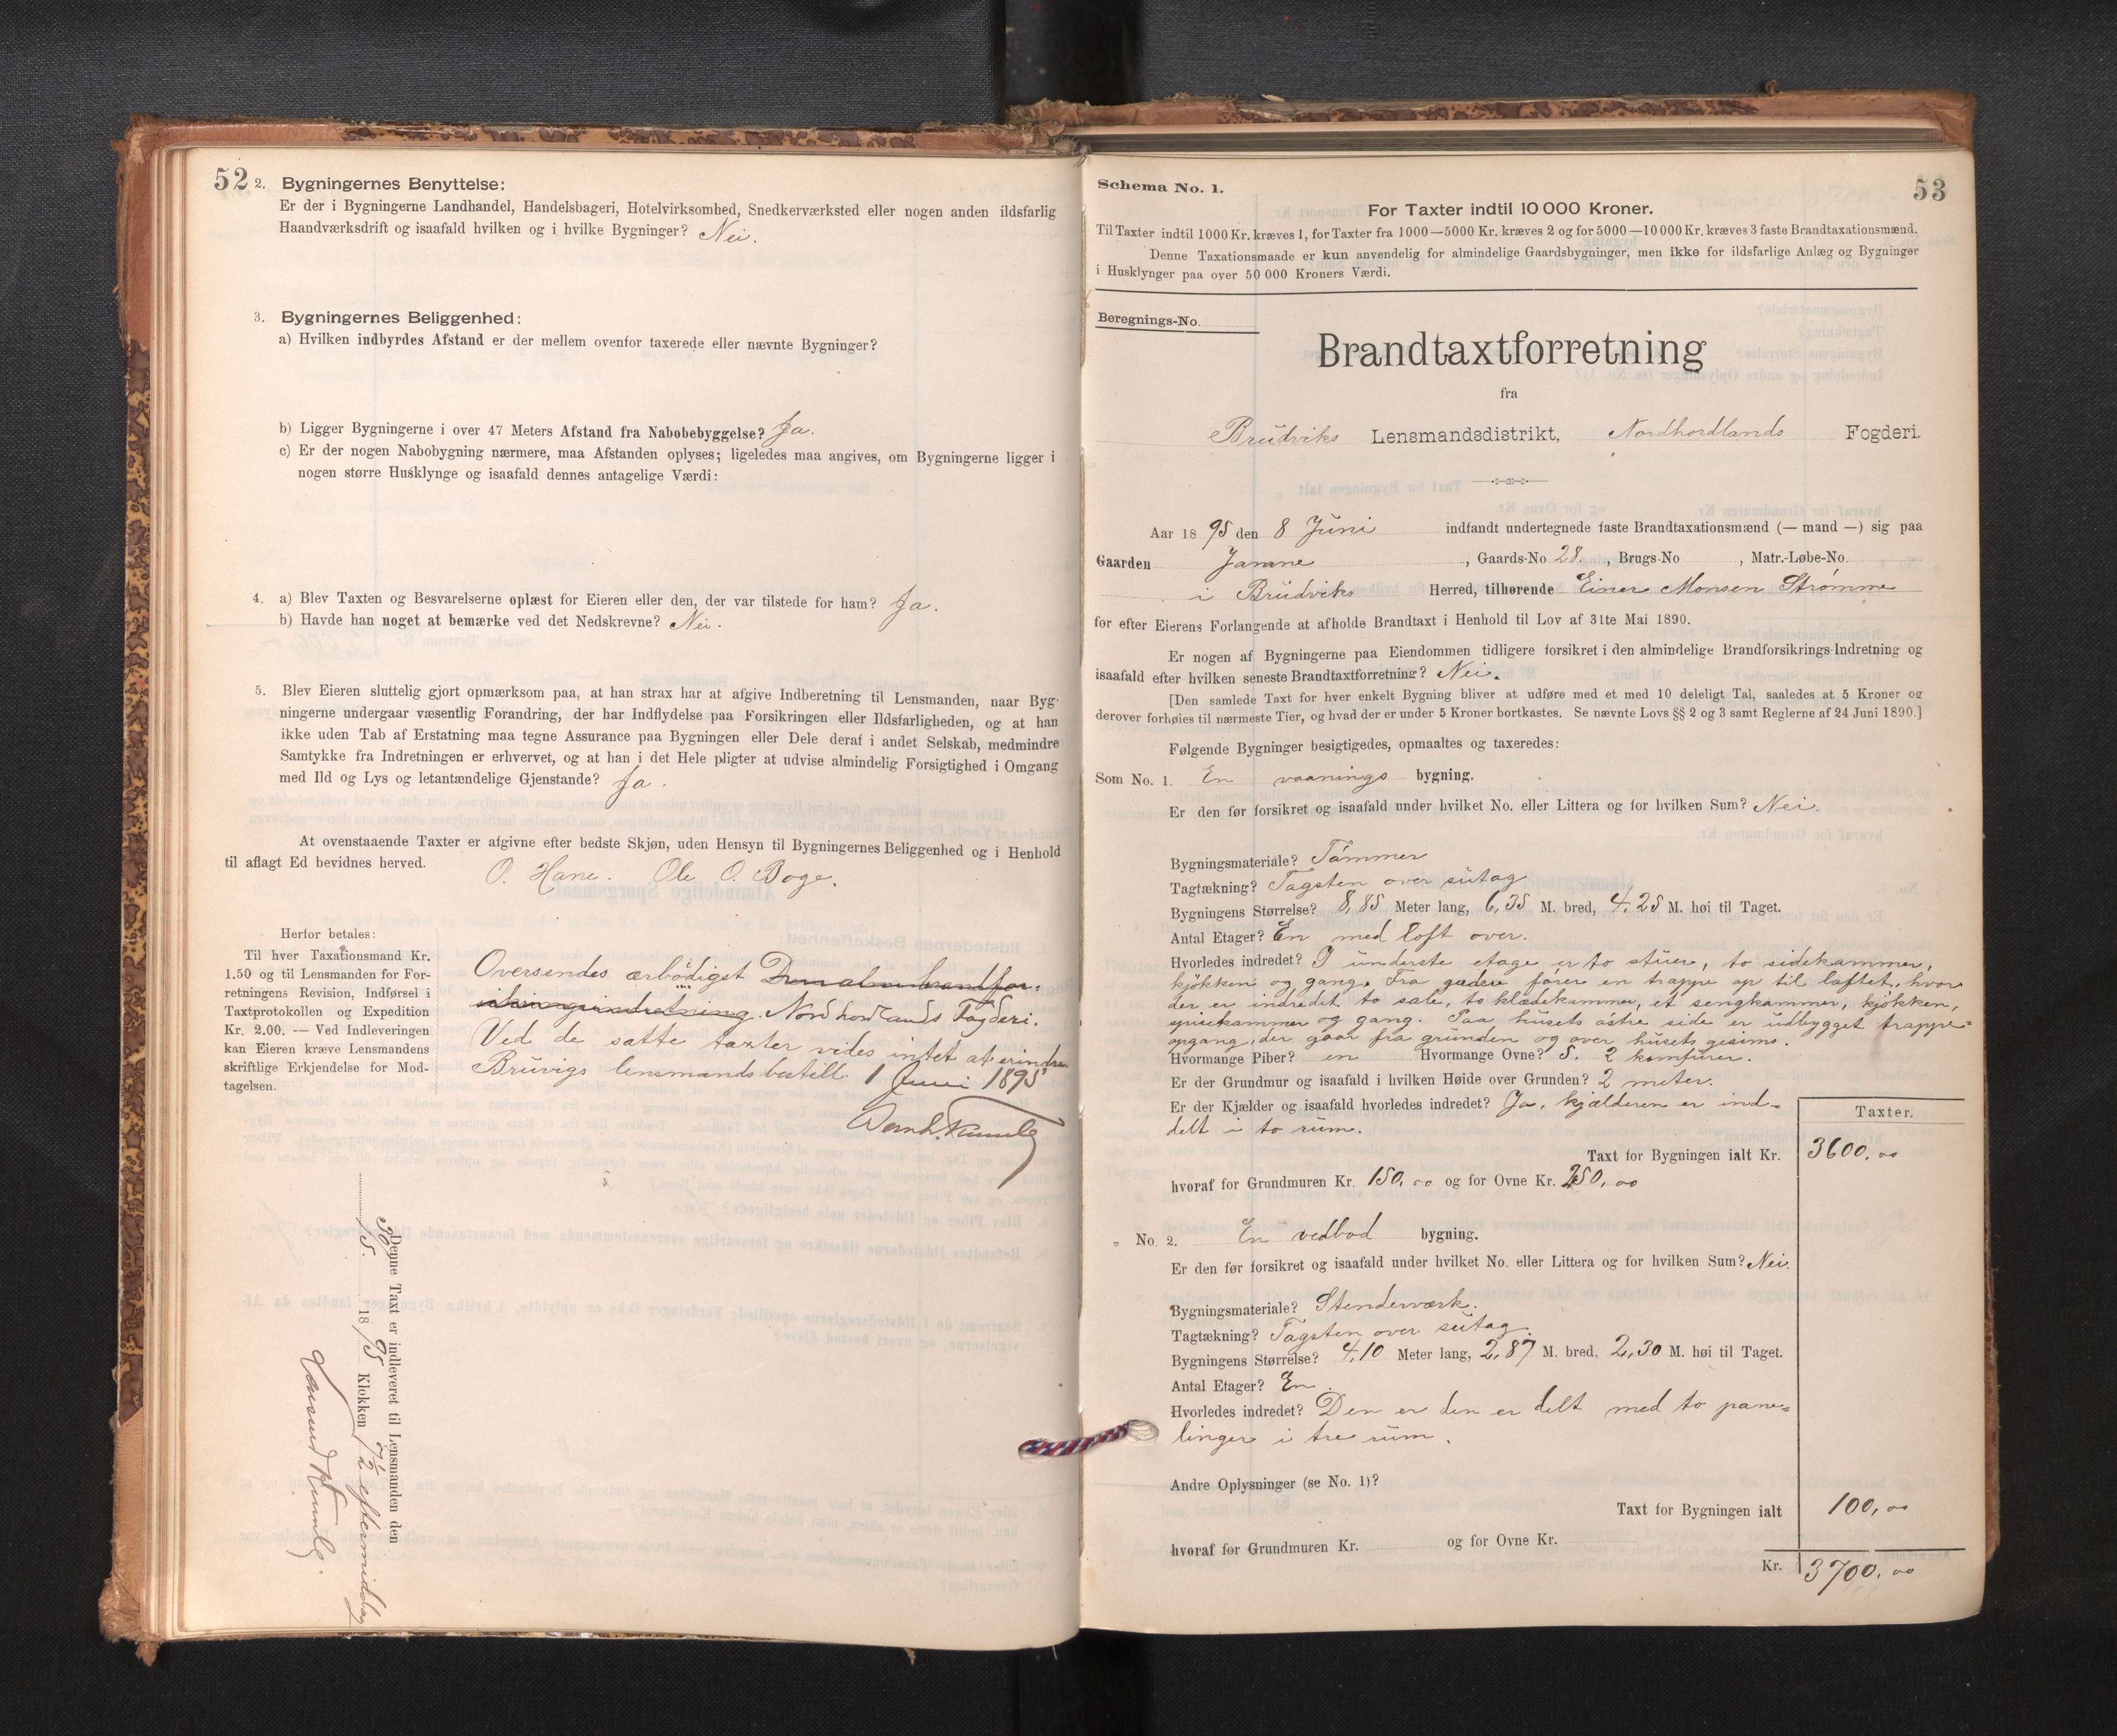 52
2. Bygningernes Benyttelse:
Er der i Bygningerne Landhandel, Handelsbageri, Hotelvirksomhed, Snedkerværksted eller nogen anden ildsfarlig
Haandværksdrift og isaafald hvilken og i hvilke Bygninger? Nei.
3. Bygningernes Beliggenhed:
a) Hvilken indbyrdes Afstand er der mellem ovenfor taxerede eller nævnte Bygninger?
b) Ligger Bygningerne i over 47 Meters Afstand fra Nabobebyggelse? Ja.
c) Er der nogen Nabobygning nærmere, maa Afstanden oplyses; ligeledes maa angives, om Bygningerne ligger i
nogen større Husklynge og isaafald dennes antagelige Værdi:
4. a) Blev Taxten og Besvarelserne oplæst for Eieren eller den, der var tilstede for ham? Ja.
b) Havde han noget at bemærke ved det Nedskrevne? Nei.
5. Blev Eieren sluttelig gjort opmærksom paa, at han strax har at afgive Indberetning til Lensmanden, naar Byg-
ningerne undergaar væsentlig Forandring, der har Indflydelse paa Forsikringen eller Ildsfarligheden, og at han
ikke uden Tab af Erstatning maa tegne Assurance paa Bygningen eller Dele deraf i andet Selskab, medmindre
Samtykke fra Indretningen er erhvervet, og at han i det Hele pligter at udvise almindelig Forsigtighed i Omgang
med Ild og Lys og letantændelige Gjenstande? Ja.
At ovenstaaende Taxter er afgivne efter bedste Skjøn, uden Hensyn til Bygningernes Beliggenhed og i Henhold
til aflagt Ed bevidnes herved. O. Hane. Ole O. Boge.
Herfor betales:
Til hver Taxationsmand Kr.
1.50 og til Lensmanden for For-
retningens Revision, Indførsel i
Taxtprotokollen og Expedition
Kr. 2.00. — Ved Indleveringen
kan Eieren kræve Lensmandens
skriftlige Erkjendelse for Mod-
tagelsen.
Oversendes ærbödigst Den alm brandfor-
sikringsindretning. Nordhordlands Fogderi.
Ved de satte taxter vides intet at erindre
Bruvigs lensmandsbestill. 1 Juni 1895
Denne Taxt er indleveret til Lensmanden den
30/5. 1895 Klokken 7½ eftermiddag
53
Schema No. 1.
For Taxter indtil 10 000 Kroner.
Til Taxter indtil 1000 Kr. kræves 1, for Taxter fra 1000—5000 Kr. kræves 2 og for 5000—10000 Kr. kræves 3 faste Brandtaxationsmænd.
Denne Taxationsmaade er kun anvendelig for almindelige Gaardsbygninger, men ikke for ildsfarlige Anlæg og Bygninger
i Husklynger paa over 50 000 Kroners Værdi.
Beregnings-No.
Brandtaxtforretning
fra
Brüdviks Lensmandsdistrikt, Nordhordlands Fogderi.
Aar 1895 den 8 Juni indfandt undertegnede faste Brandtaxationsmænd (— mand —) sig paa
Gaarden Jamne, Gaards-No 28., Brugs-No , Matr.-Løbe-No.
i Brüdviks Herred, tilhørende Einar Monsen Strømme
for efter Eierens Forlangende at afholde Brandtaxt i Henhold til Lov af 31te Mai 1890.
Er nogen af Bygningerne paa Eiendommen tidligere forsikret i den almindelige Brandforsikrings-Indretning og
isaafald efter hvilken seneste Brandtaxtforretning? Nei.
[Den samlede Taxt for hver enkelt Bygning bliver at udføre med et med 10 deleligt Tal, saaledes at 5 Kroner og
derover forhøies til nærmeste Tier, og hvad der er under 5 Kroner bortkastes. Se nævnte Lovs §§ 2 og 3 samt Reglerne af 24 Juni 1890.]
Følgende Bygninger besigtigedes, opmaaltes og taxeredes:
Som No. 1. En vaanings bygning.
Er den før forsikret og isaafald under hvilket No. eller Littera og for hvilken Sum? Nei.
Bygningsmateriale? Tömmer
Tagtækning? Tagsten over sutag
Bygningens Størrelse? 8,85 Meter lang, 6,35 M. bred, 4,25 M. høi til Taget.
Antal Etager? En med loft over.
Hvorledes indredet? I underste etage er to stuer, to sidekammer,
kjökken og gang. Fra gaden fører en trappe op til loftet, hvor
der er indredet to sale, to klædekammer, et sengkammer, kjökken,
spisekammer og gang. Paa husets östre side er udbygget trappe-
opgang, der gaar fra grunden og over husets gesims.
Hvormange Piber? en Hvormange Ovne? 5. 2 komfurer.
Er der Grundmur og isaafald i hvilken Høide over Grunden? 2 meter.
Er der Kjælder og isaafald hvorledes indredet? Ja, kjælderen er ind-
delt i to rum.
Taxter.
Taxt for Bygningen ialt Kr. 3600.00
hvoraf for Grundmuren Kr. 150.00 og for Ovne Kr. 250,00
„ No. 2. En vedbod bygning.
Er den før forsikret og isaafald under hvilket No. eller Littera og for hvilken Sum? Nei.
Bygningsmateriale? Stenderværk.
Tagtækning? Tagsten over sutag.
Bygningens Størrelse? 4,10 Meter lang, 2,87 M. bred, 2,30 M. høi til Taget.
Antal Etager? En.
Hvorledes indredet? Den er den er delt med to pane-
linger i tre rum.
Andre Oplysninger (se No. 1)?
Taxt for Bygningen ialt 100,00
hvoraf for Grundmuren Kr. og for Ovne Kr.
Kr. 3700.00